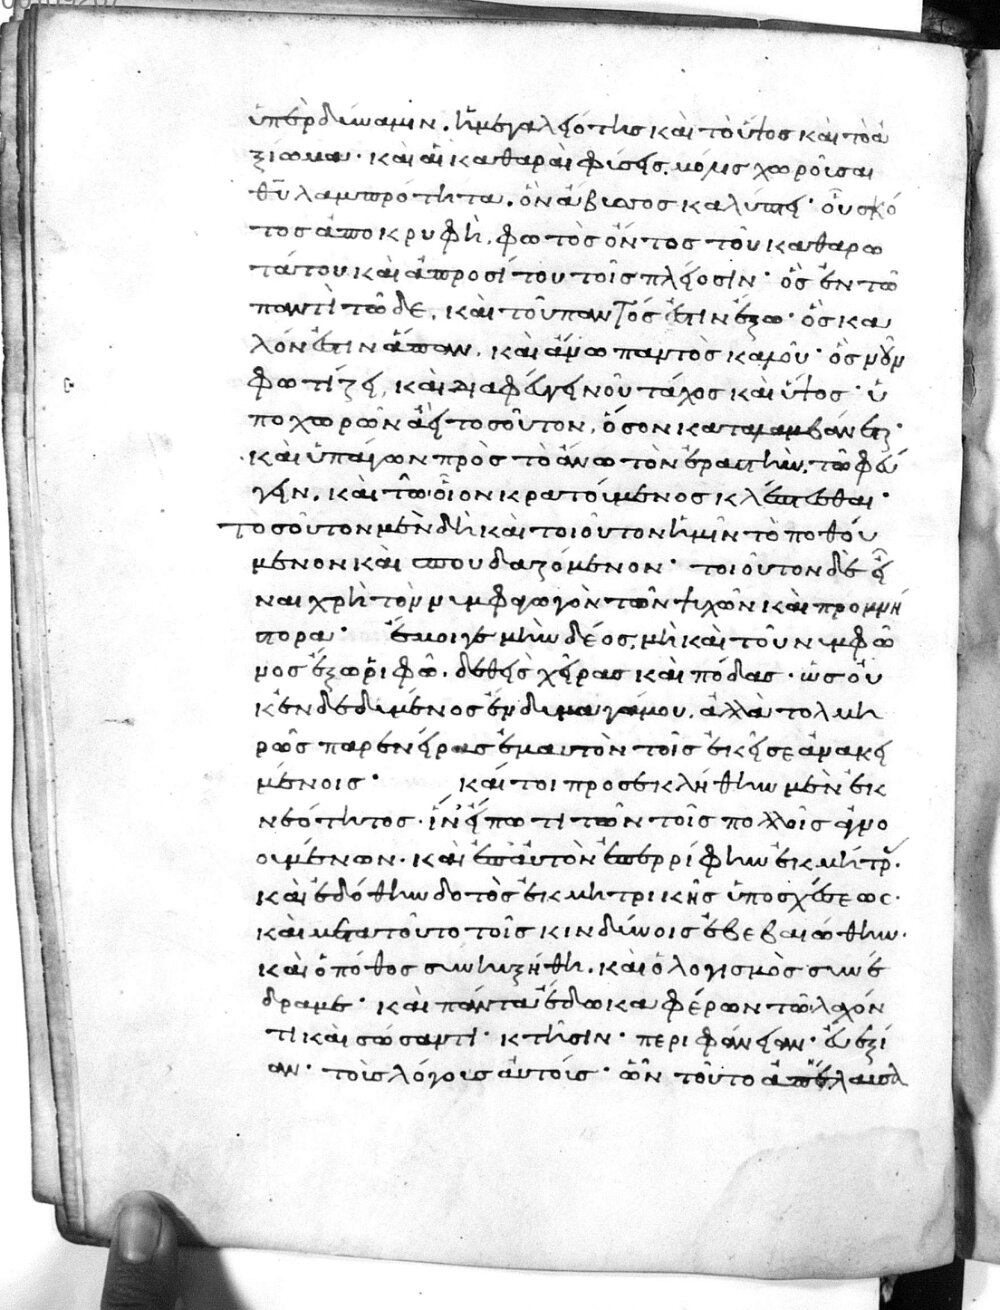 ὑπὲρ δύναμιν. ἡ μεγαλειότης καὶ τὸ ὕψος καὶ τὸ ἀ
ξίωμα· καὶ αἱ καθαραὶ φύσεις, μόλις χωροῦσαι
θῦ λαμπρότητα. ὃν ἄβυσσος καλύπτει· οὗ σκό
τος ἀποκρυφὴ, φωτὸς ὄντος τοῦ καθαρω
τάτου καὶ ἀπροσίτου τοῖς πλείοσιν· ὃς ἐν τῶ
παντὶ τῶδε, καὶ τοῦ παντός ἐστιν ἔξω· ὃς κα
λόν ἐστιν ἅπαν, καὶ ἄνω παντὸς καλοῦ· ὃς νοῦν
φωτίζει, καὶ διαφεύγει νοῦ τάχος καὶ ὕψος· ὑ
ποχωρῶν ἀεὶ τοσοῦτον, ὅσον καταλαμβάνεται·
καὶ ὑπάγων πρὸς τὸ ἄνω τὸν ἐραστὴν, τῶ φεύ
γειν, καὶ τῶ οἷον κρατούμενος κλέπτεσθαι·
Τοσοῦτον μὲν δὴ καὶ τοιοῦτον ἡμῖν τὸ ποθού
μενον καὶ σπουδαζόμενον· τοιοῦτον δὲ εἶ
ναι χρὴ τὸν νυμφαγωγὸν τῶν ψυχῶν καὶ προμνή
στορα· ἔμοιγε μὴν δέος, μὴ καὶ τοῦ νυμφῶ
νος ἔξω ῥιφῶ. δεθεὶς χεῖρας καὶ πόδας· ὡς οὐ
κ ἐνδεδυμένος ἔνδυμα γάμου, ἀλλὰ τολμη
ρῶς παρενείρας ἐμαυτὸν τοῖς ἐκεῖσε ἀνακει
μένοις· καί τοι προσεκλήθην μὲν ἐκ
νεότητος· ἵν' εἴπω τι τῶν τοῖς πολλοῖς ἀγνο
ουμένων· καὶ ἐπ' αὐτὸν ἐπερρίφην ἐκ μήτρ.
καὶ ἐδόθην δοτὸς ἐκ μητρικῆς ὑποσχέσεως·
καὶ μετὰ τοῦτο τοῖς κινδύνοις ἐβεβαιώθην·
καὶ ὁ πόθος συνηυξήθη. καὶ ὁ λογισμὸς συνέ
δραμε· καὶ πάντα ἔδωκα φέρων τῶ λαχόν
τι καὶ σώσαντι· κτῆσιν· περιφάνειαν· εὐεξί
αν· τοὺς λόγους αὐτούς· ὧν τοῦτο ἀπέλαυσα